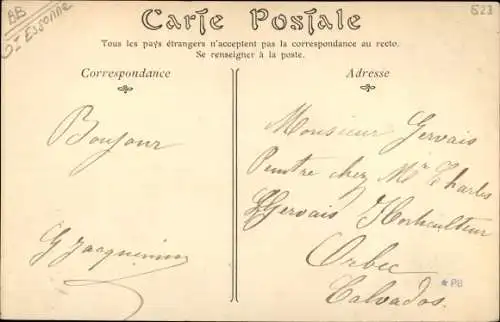 BB
91 Essonne
623
Carte Postale
Tous les pays étrangers n'acceptent pas la correspondance au recto.
Se renseigner à la poste.
Correspondance
Bonjour
G Jacquemin
Adresse
Monsieur Gervais
Peintre chez Mr Charles
Gervais Horticulteur
Orbec
Calvados.
*PB